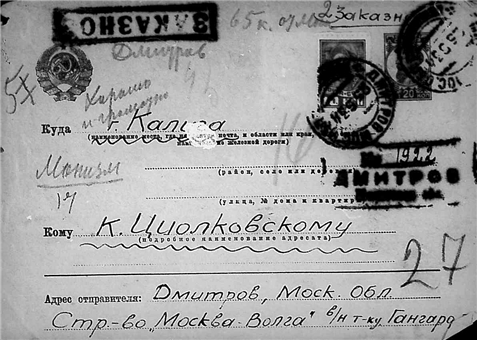 ЗАКАЗНО
65 к.
2 Заказн
Дмитров
5х
Хорошо
и
Куда г. Калуга
(наименование места, где находится почта, и области или края,
железной дороги)
Монизм
(район, село или
(улица, № дома и квартиры
ДМИТРОВ
14
Кому К. Циолковскому
(подробное наименование адресата)
27
Адрес отправителя: Дмитров, Моск. Обл.
Стр-во „Москва-Волга" в/н т-ку Гангард